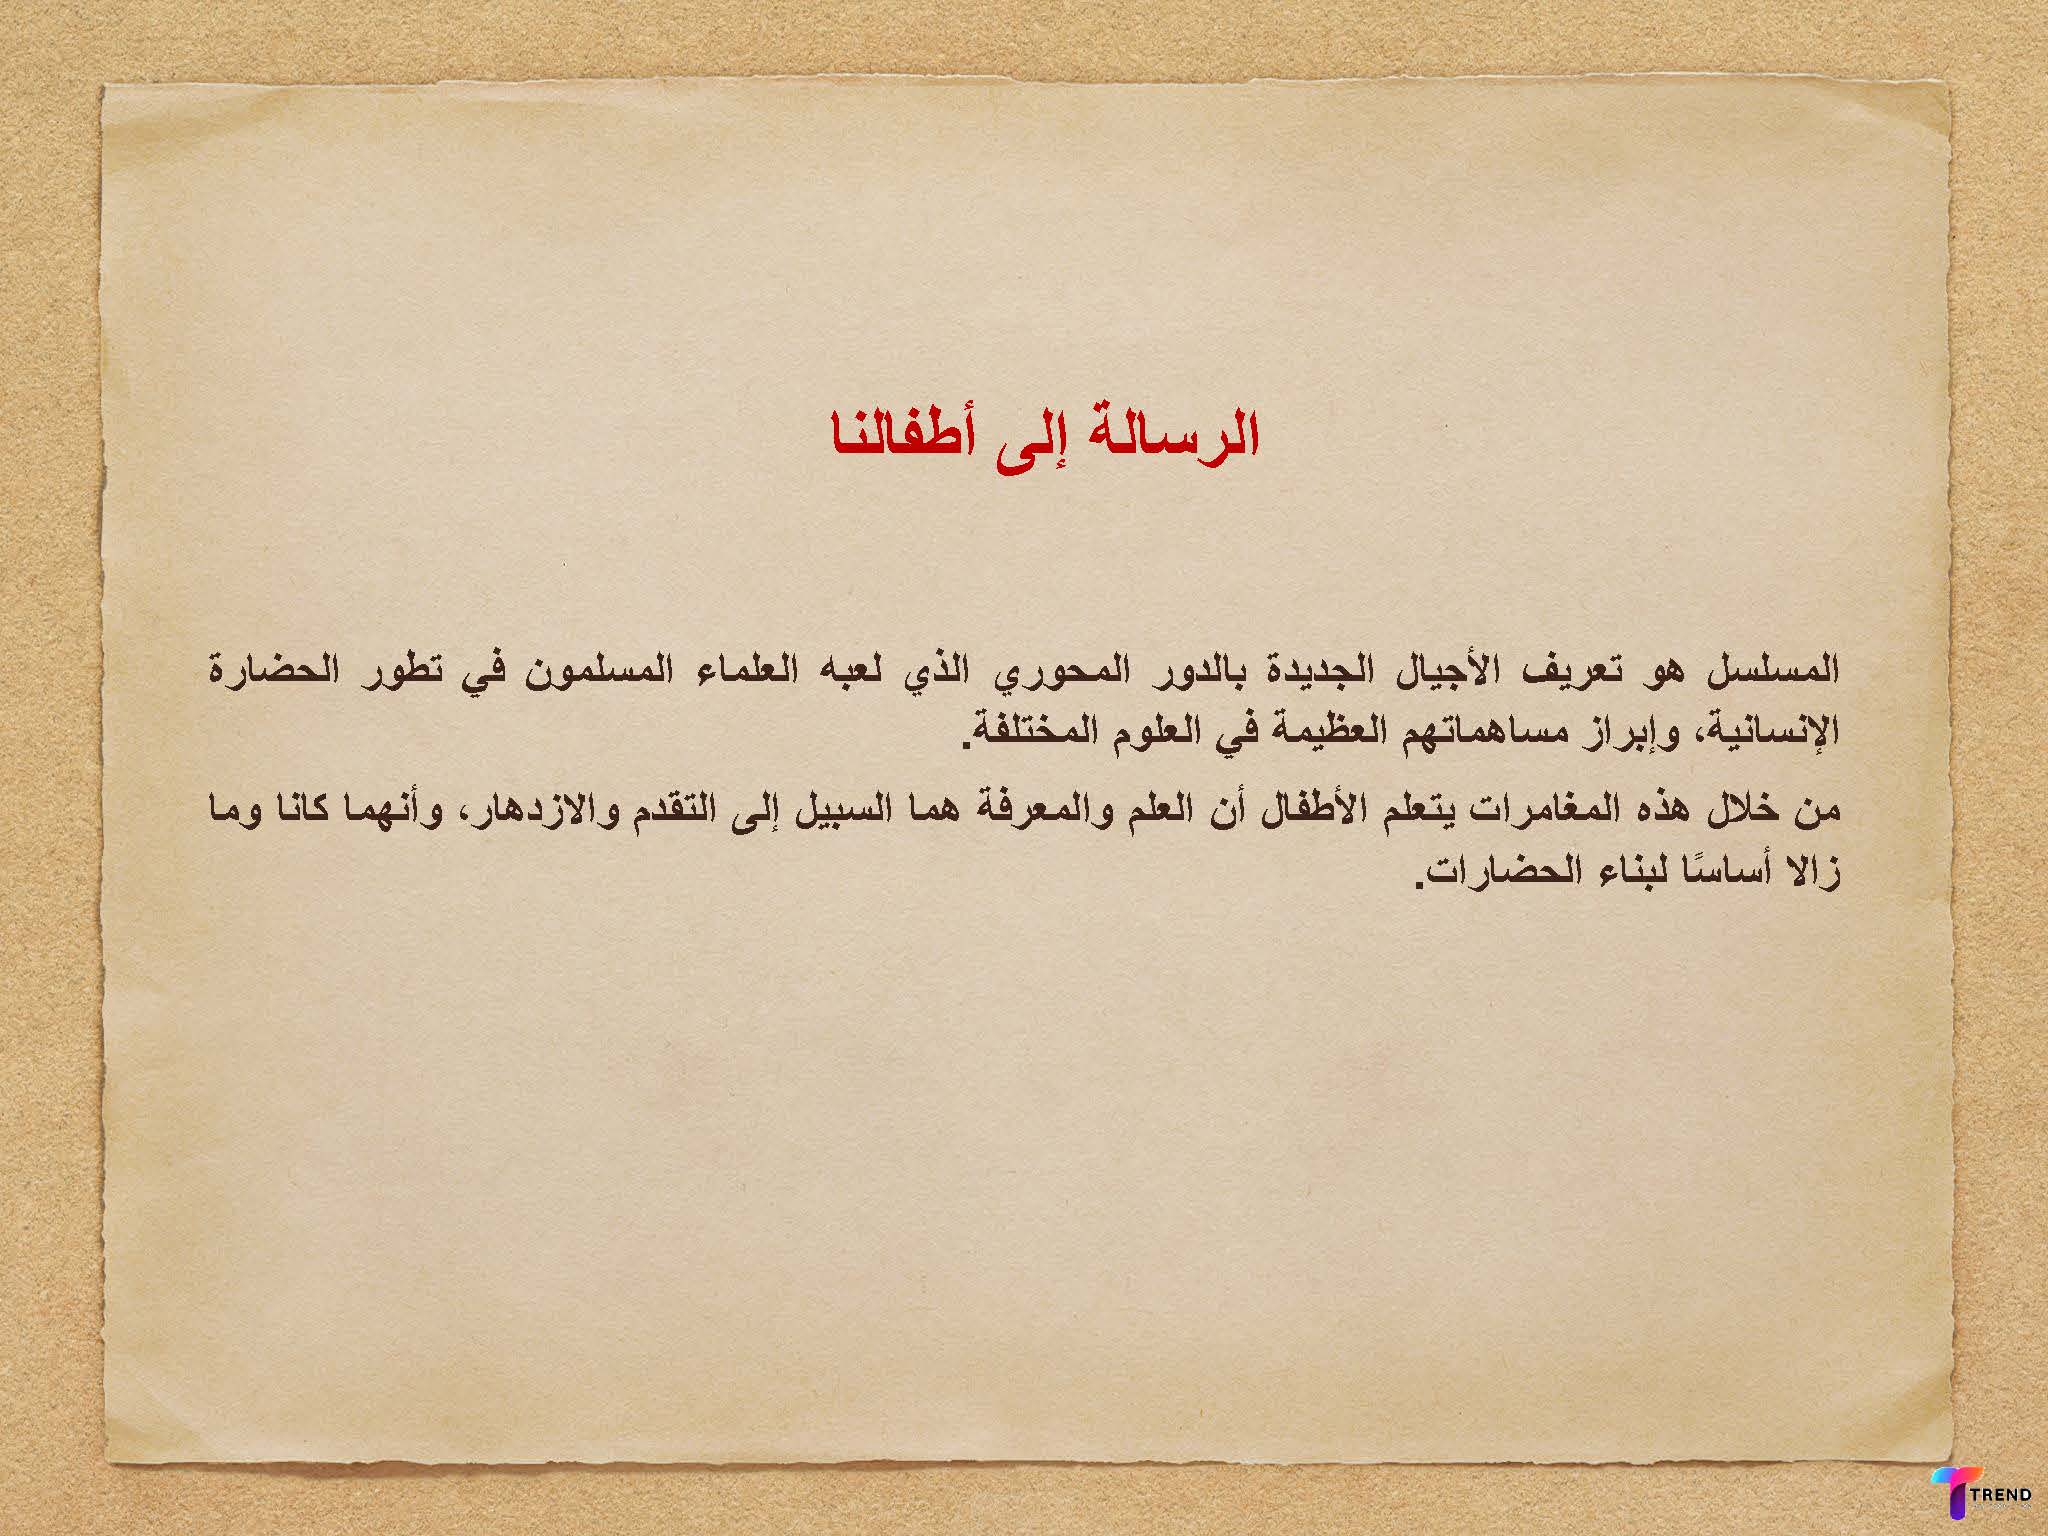 الرسالة إلى أطفالنا
المسلسل هو تعريف الأجيال الجديدة بالدور المحوري الذي لعبه العلماء المسلمون في تطور الحضارة
الإنسانية، وإبراز مساهماتهم العظيمة في العلوم المختلفة.
من خلال هذه المغامرات يتعلم الأطفال أن العلم والمعرفة هما السبيل إلى التقدم والازدهار، وأنهما كانا وما
زالا أساسًا لبناء الحضارات.
TREND